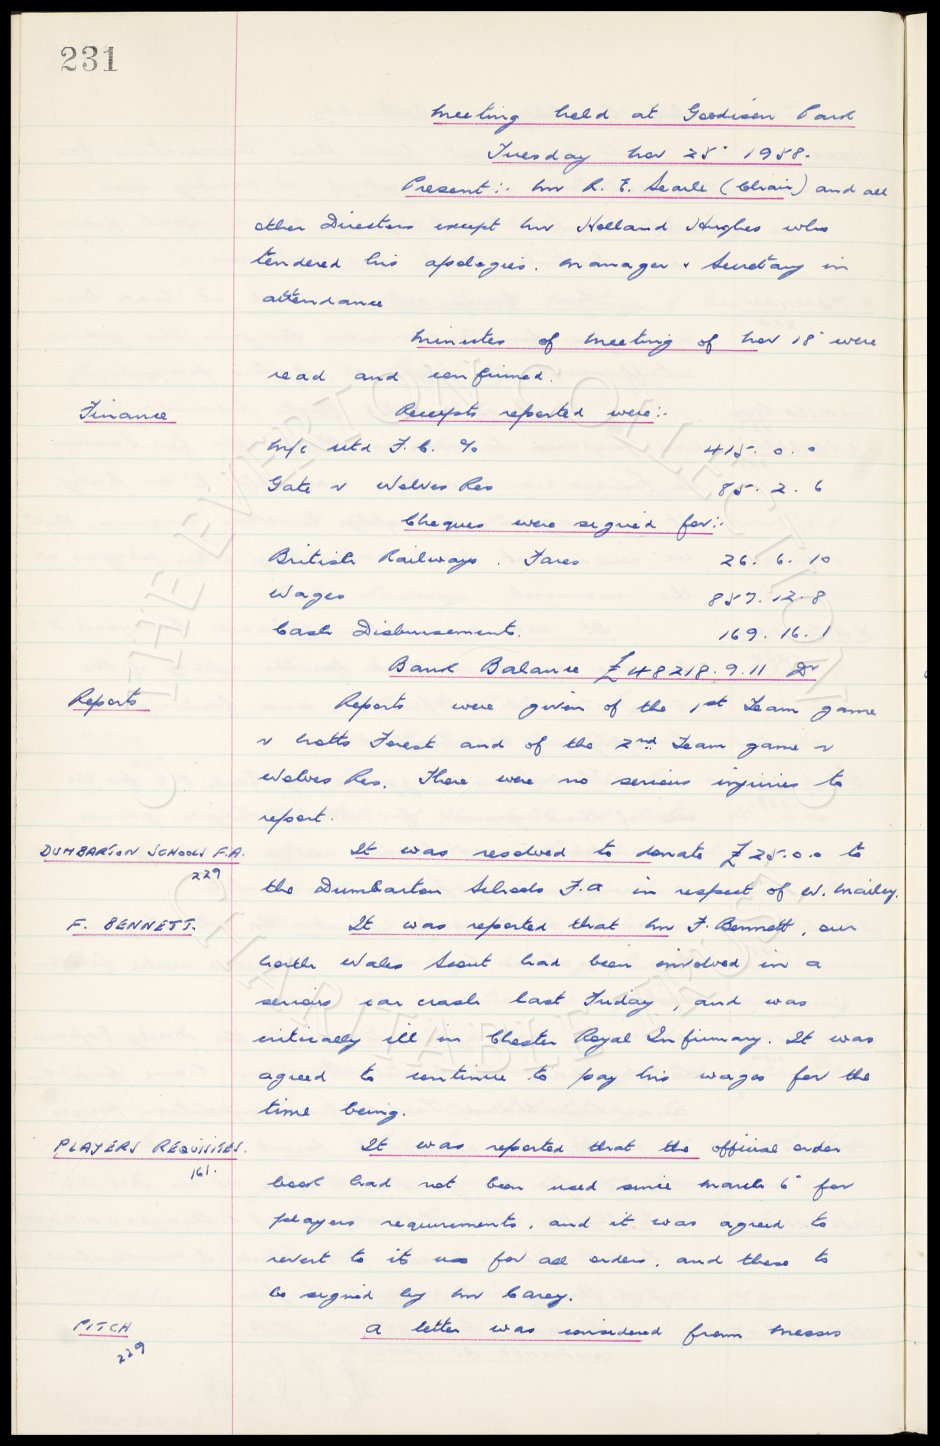 231
Meeting held at Goodison Park
Tuesday Nov 25" 1958.
Present :. Mr R. E. Searle (Chair) and all
other Directors except Mr Holland Hughes who
tendered his apologies. Manager & Secretary in
attendance
Minutes of Meeting of Nov 18" were
read and confirmed.
Finance Receipts reported were :.
M/c Utd F.C. % 415. 0. 0
Gate v Wolves Res 85. 2. 6
Cheques were signed for :.
British Railways. Fares 26. 6. 10
Wages 857. 12. 8
Cash Disbursements. 169. 16. 1
Bank Balance £48218. 9. 11 Dr
Reports Reports were given of the 1st Team game
v Notts Forest and of the 2nd Team game v
Wolves Res. There were no serious injuries to
report.
DUMBARTON SCHOOLS F.A. It was resolved to donate £25.0.0 to
229 the Dumbarton Schools F.A in respect of W. Mailey.
F. BENNETT. It was reported that Mr F. Bennett, our
North Wales Scout had been involved in a
serious car crash last Friday, and was
critically ill in Chester Royal Infirmary. It was
agreed to continue to pay his wages for the
time being.
PLAYERS REQUISITES. It was reported that the official order
161. book had not been used since March 6" for
players requirements, and it was agreed to
revert to its use for all orders, and these to
be signed by Mr Carey.
PITCH A letter was considered from Messrs
229
THE EVERTON COLLECTION
CHARITABLE TRUST